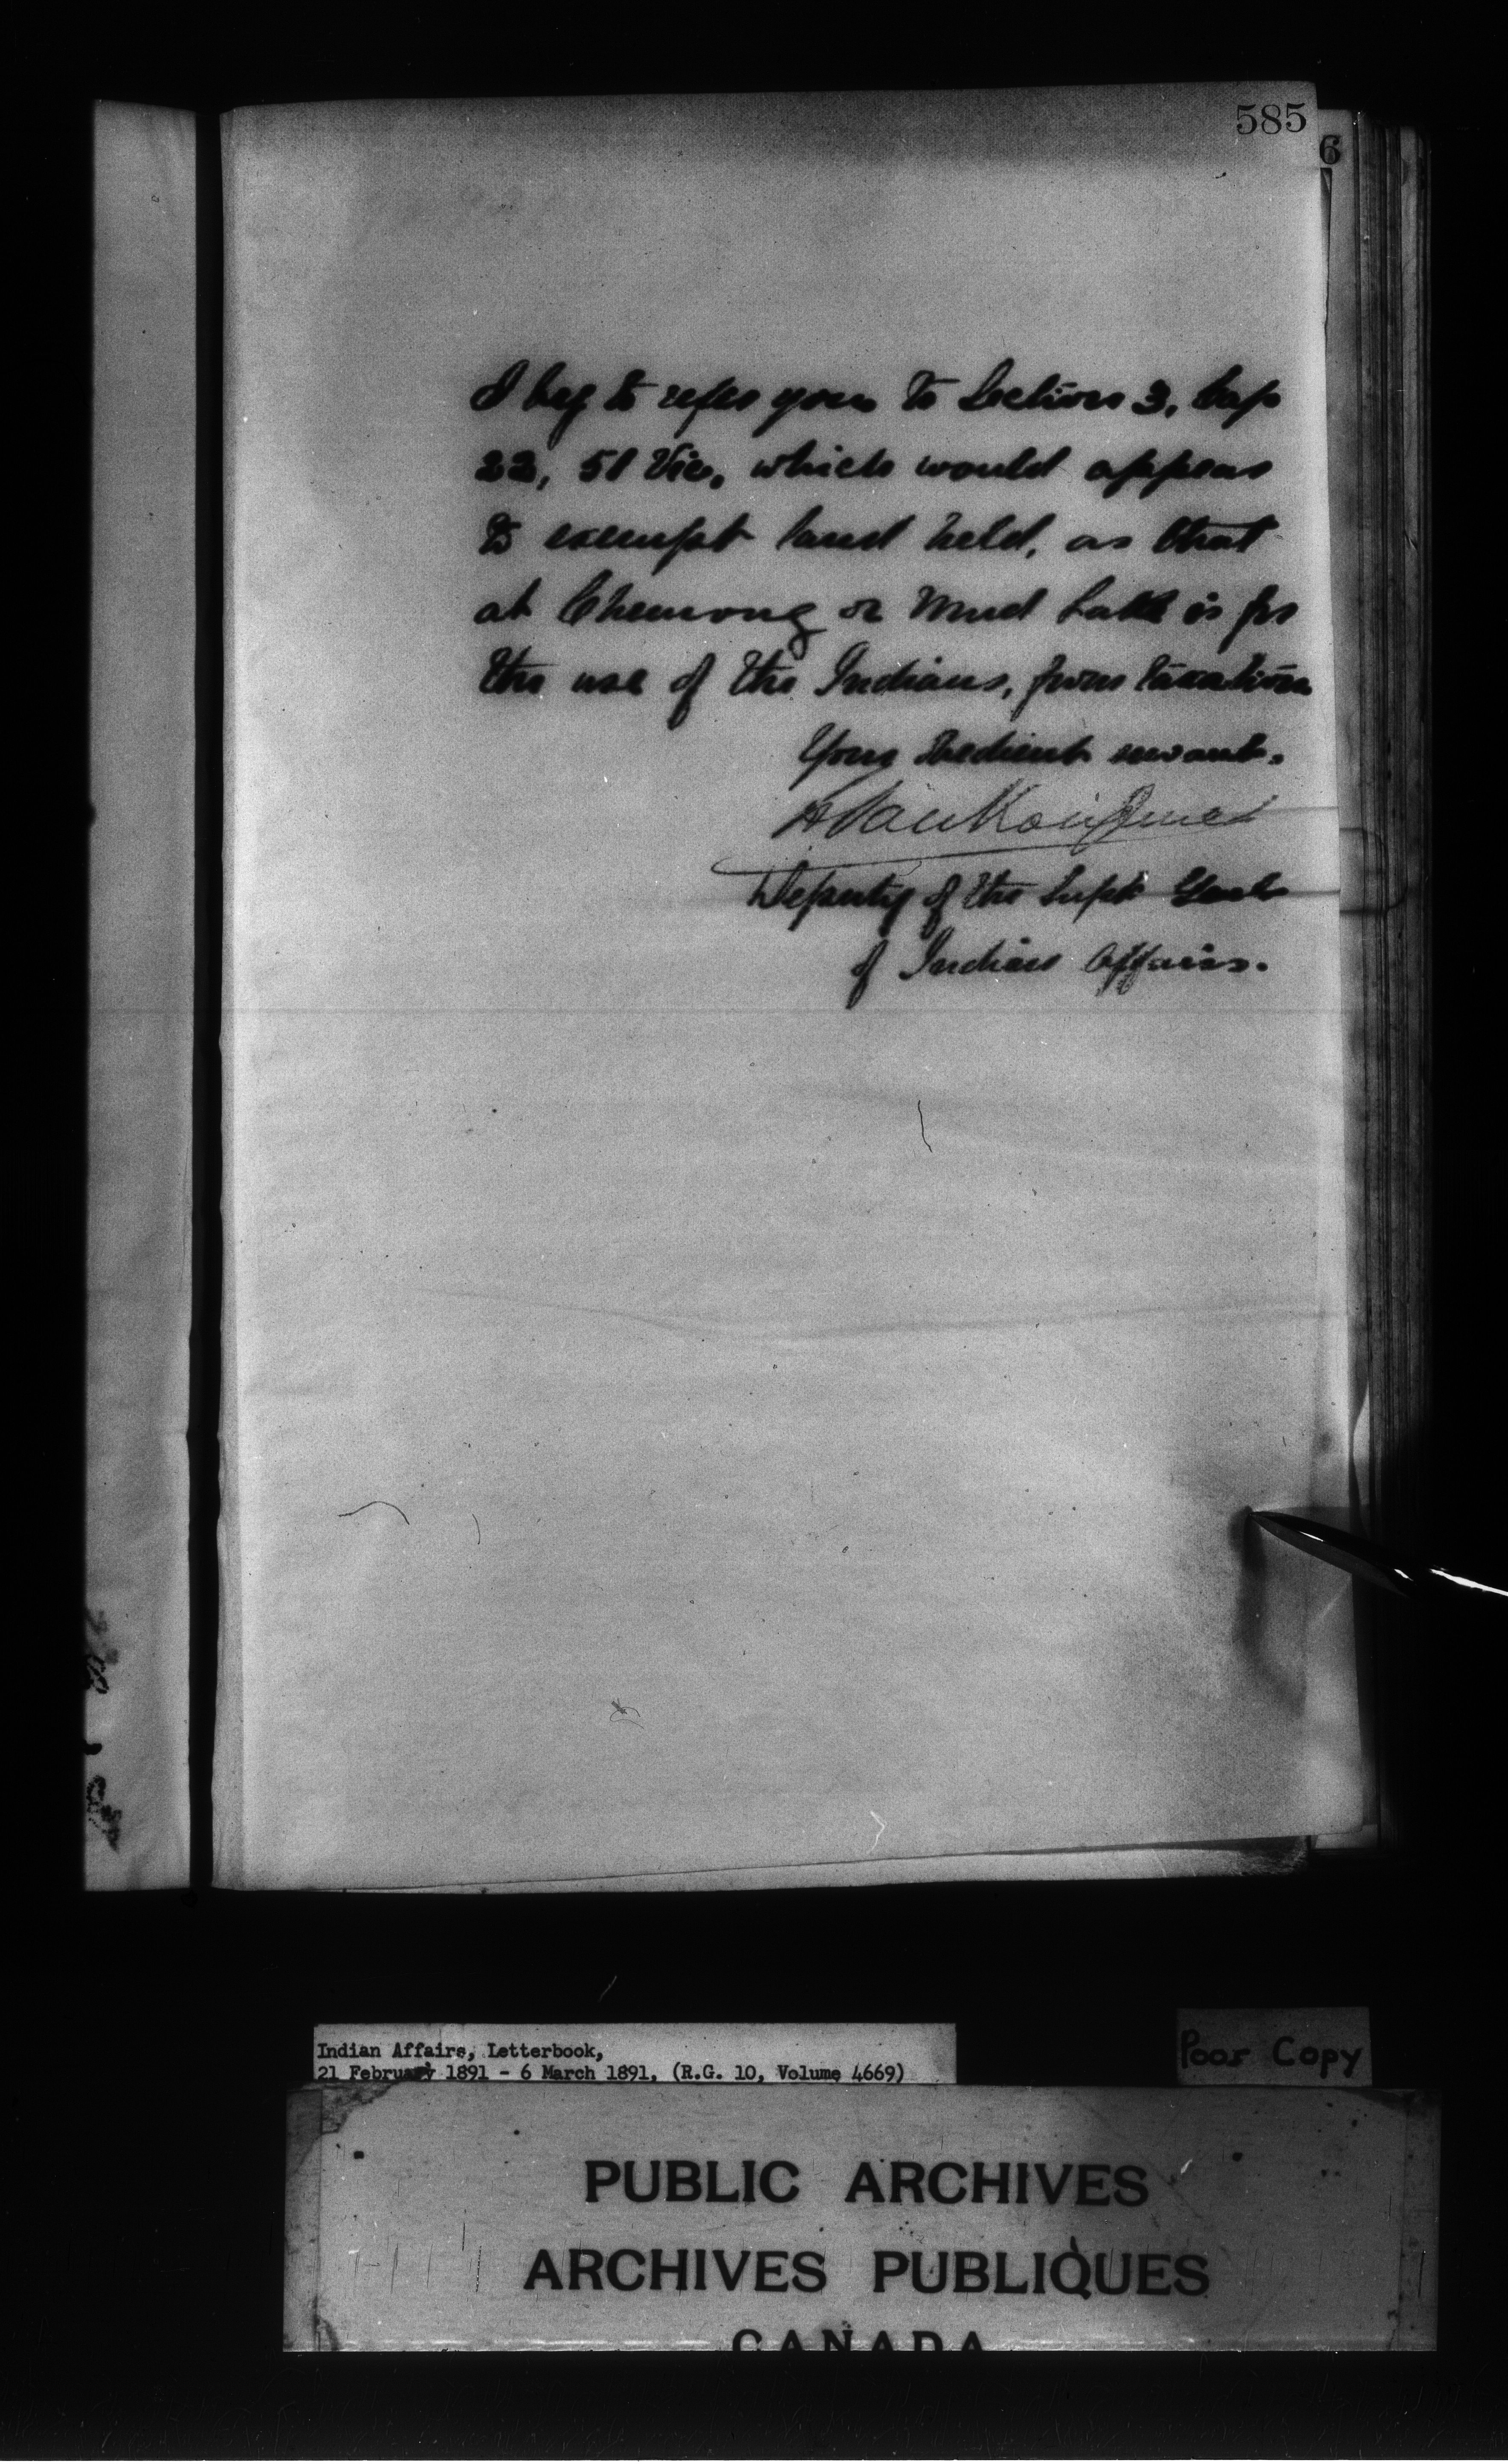 585
6
I beg to refer you to Section 3, Cap
22, 51 Vic, which would appear
to exempt land held, as that
at Chemong or Mud Lake is for
the use of the Indians, from taxation
Your obedient servant.
L Vankoughnet
Deputy of the Supt Genl
of Indian Affairs.
Indian Affairs, Letterbook,
21 February 1891 - 6 March 1891, (R.G. 10, Volume 4669)
Poor Copy
PUBLIC ARCHIVES
ARCHIVES PUBLIQUES
CANADA